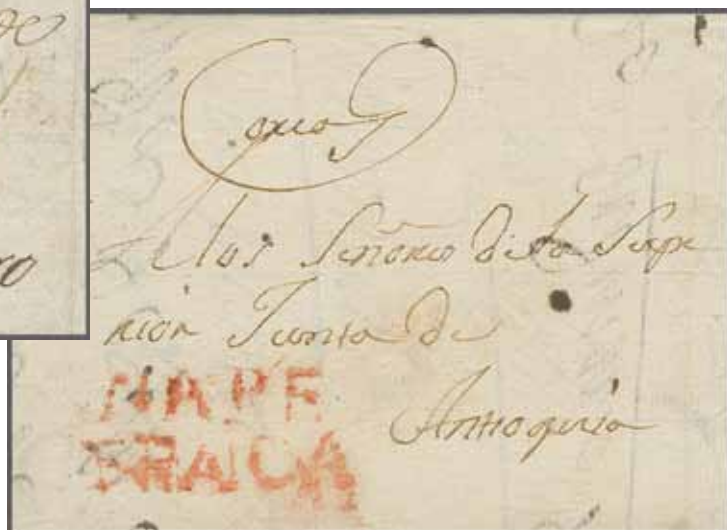 los Señores de la Supe
rior Junta de
Antioquia
NARE
FRANCA